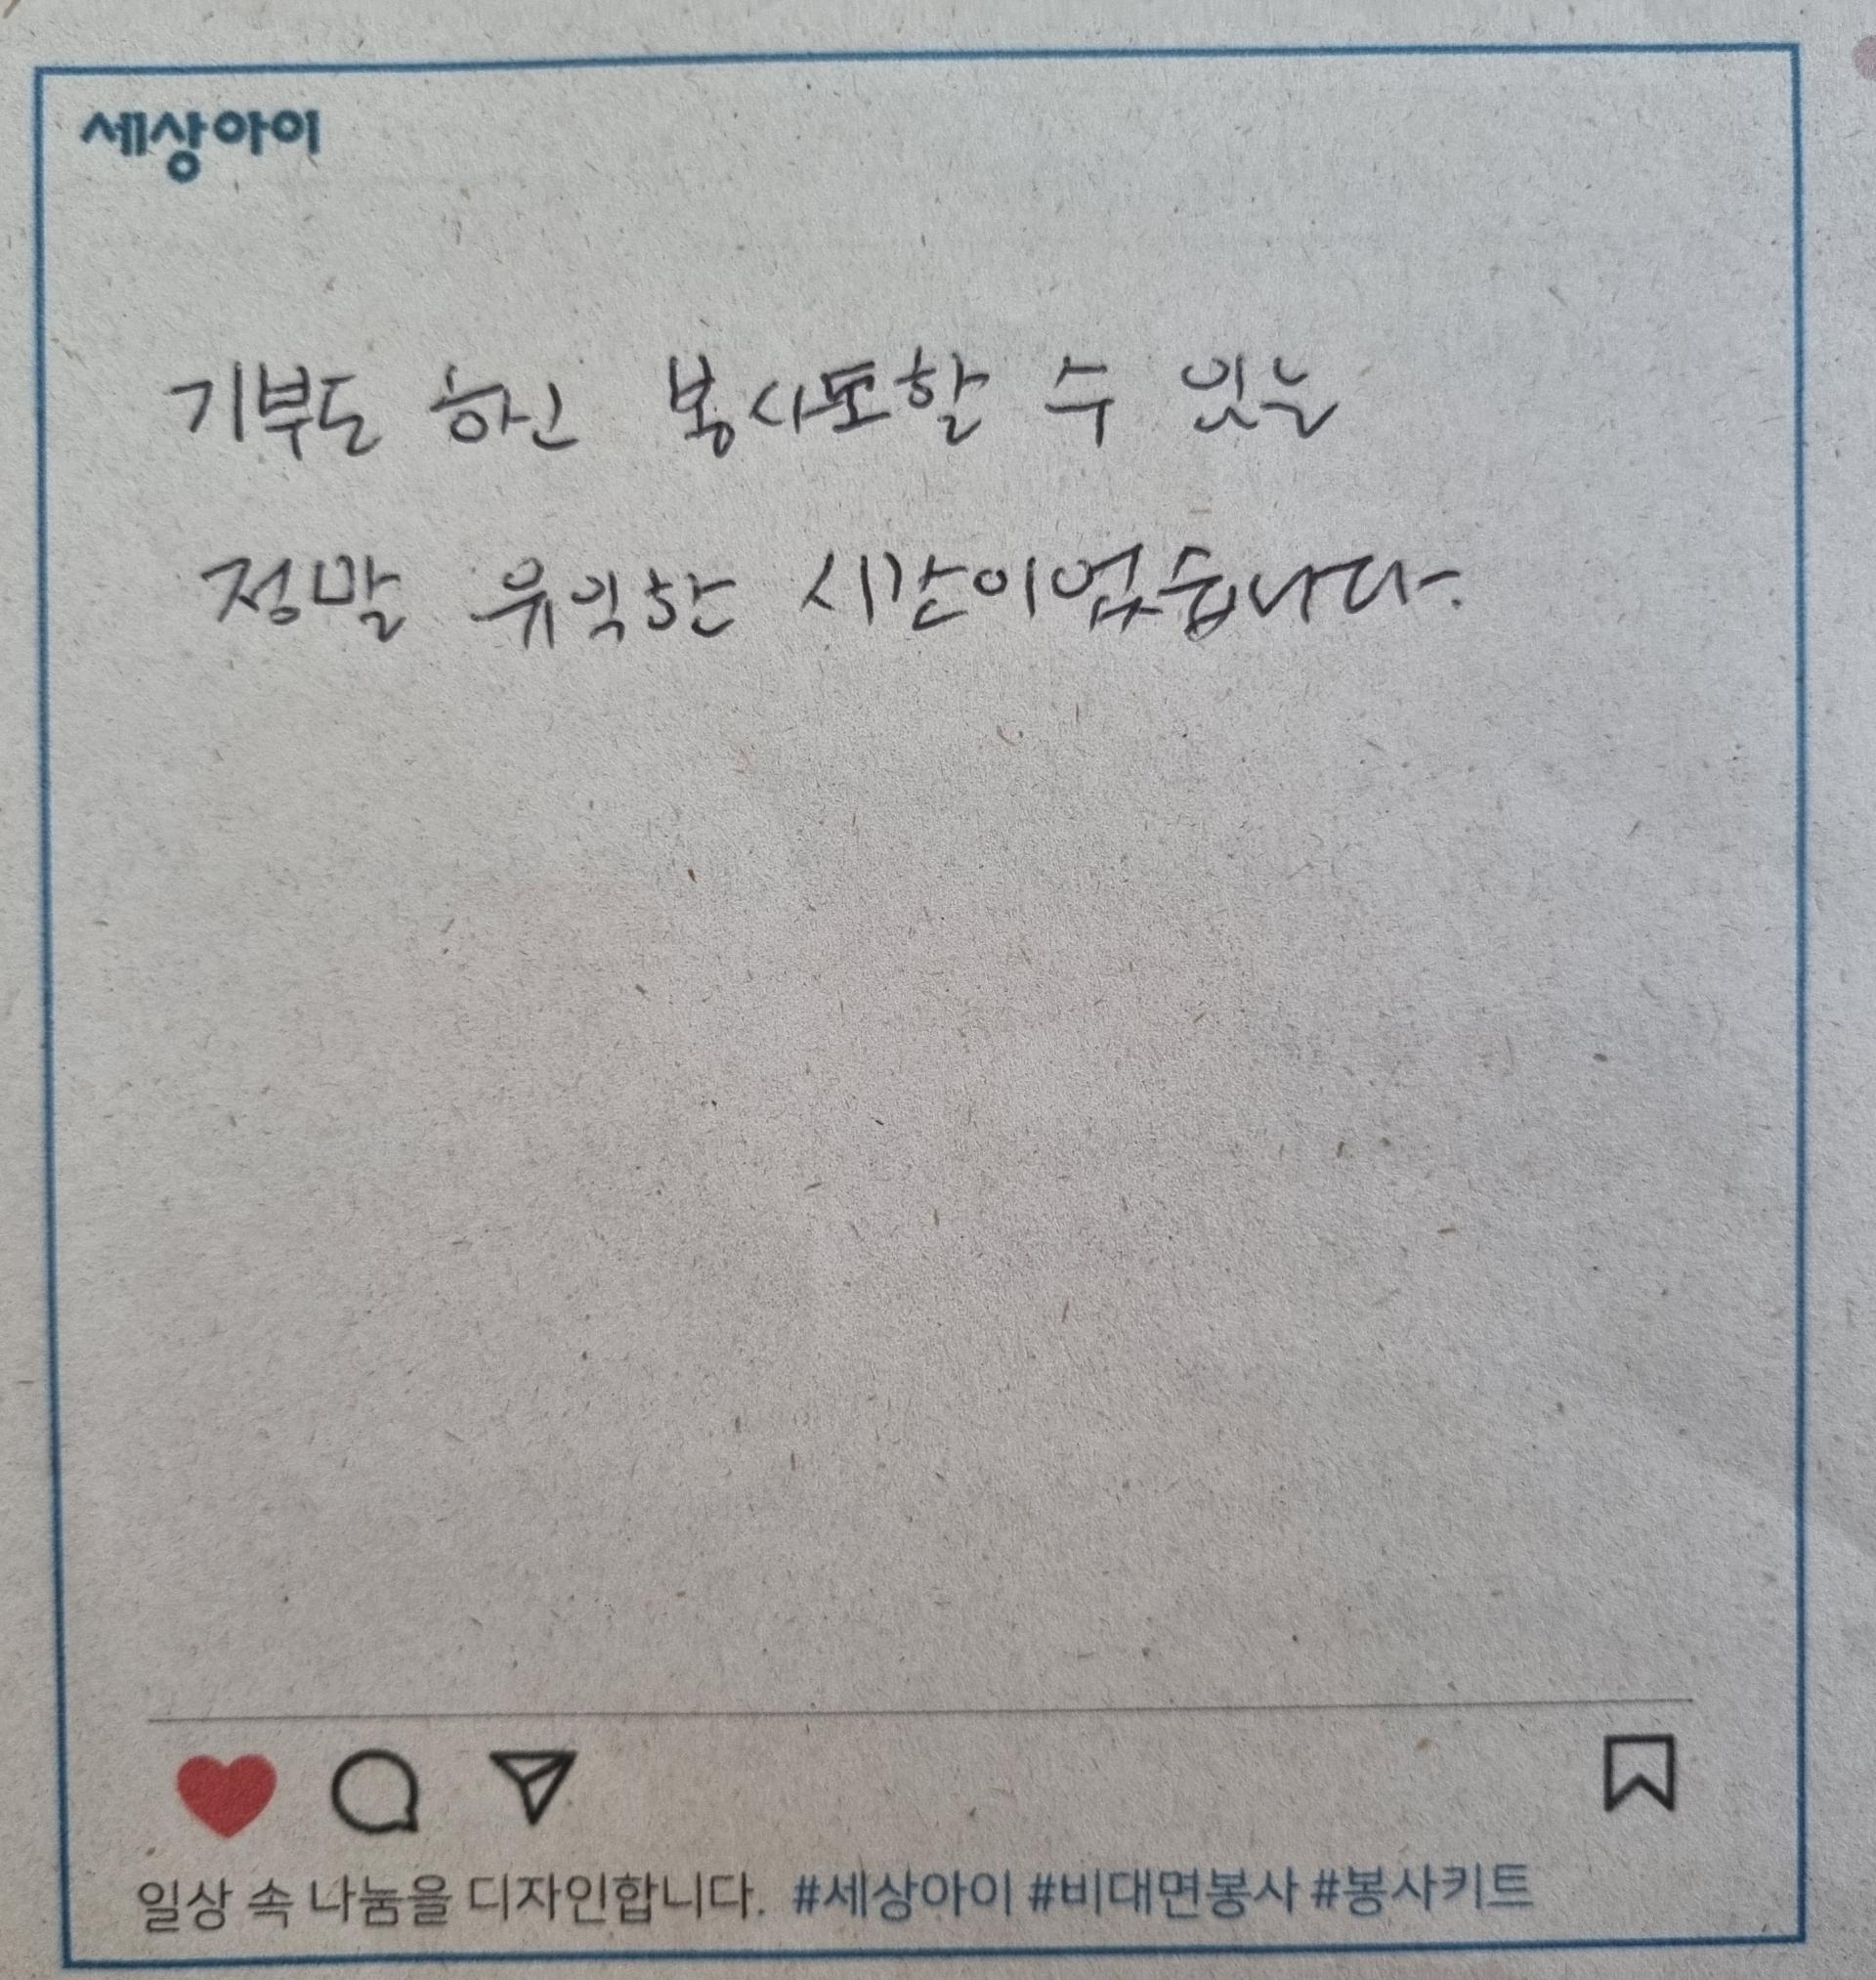 세상아이
기부도 하고 봉사도할 수 있는
정말 유익한 시간이었습니다.
일상 속 나눔을 디자인합니다. #세상아이 #비대면봉사 #봉사키트